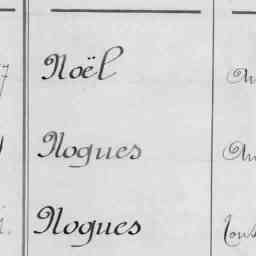 Noël
Nogues
Nogues